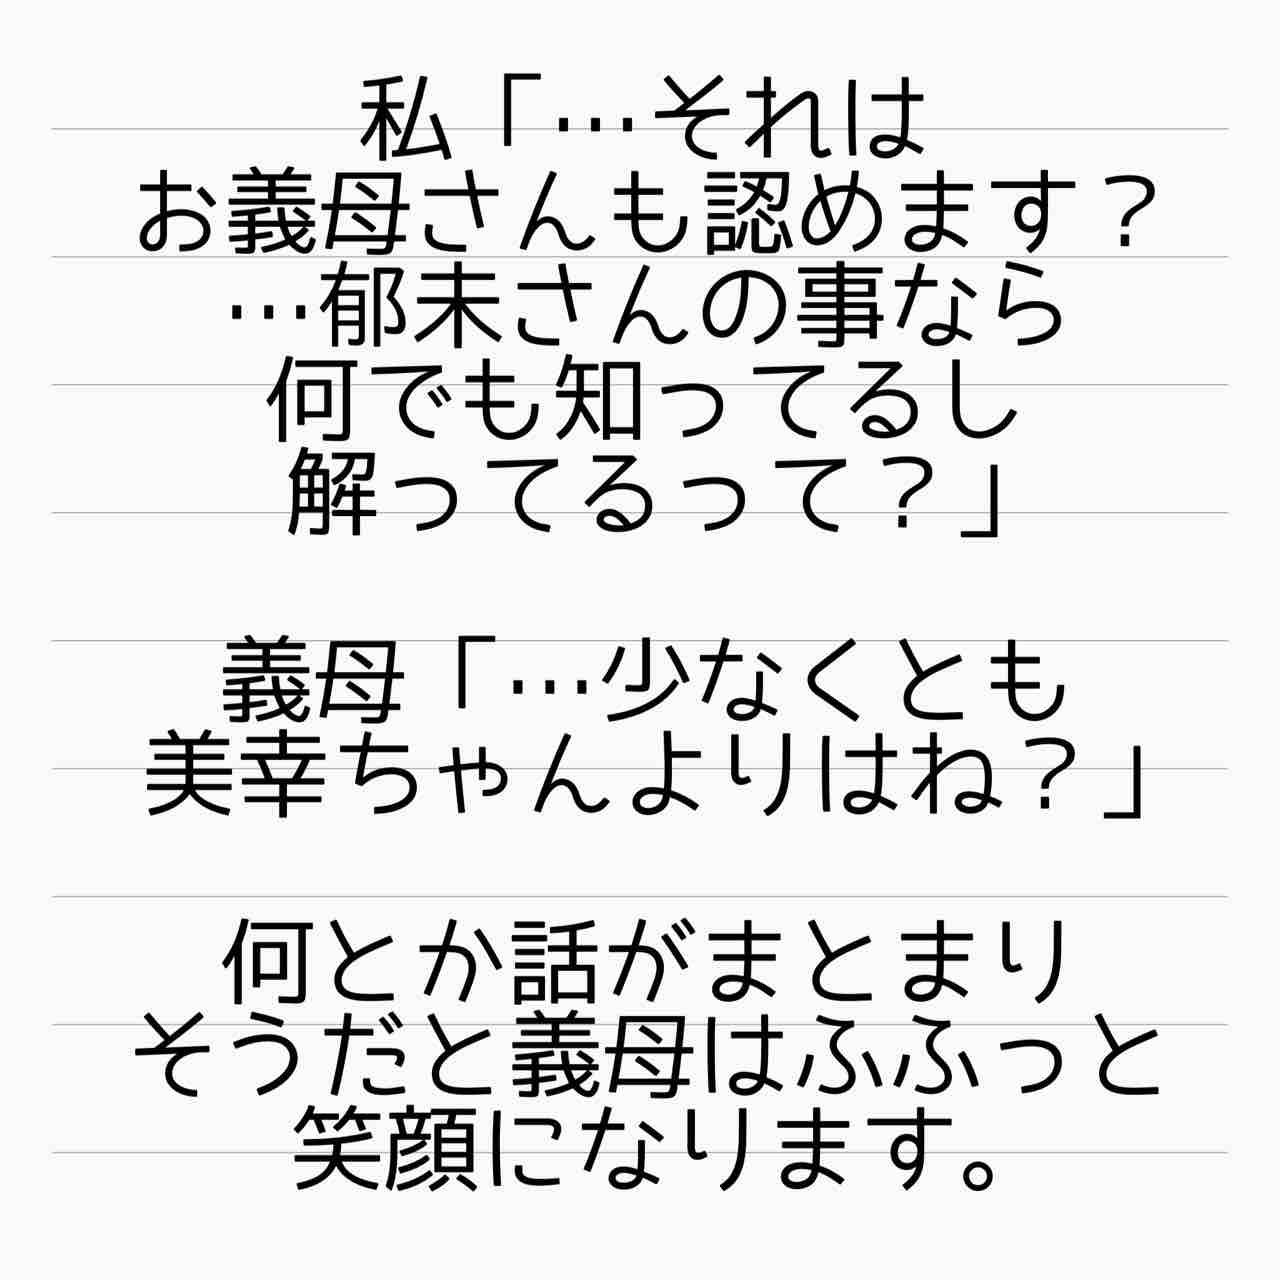 私「…それは
お義母さんも認めます？
…郁未さんの事なら
何でも知ってるし
解ってるって？」
義母「…少なくとも
美幸ちゃんよりはね？」
何とか話がまとまり
そうだと義母はふふっと
笑顔になります。